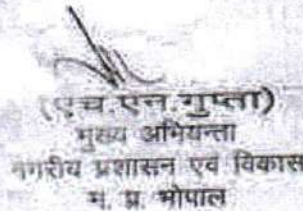 (एच.एन.गुप्ता)
मुख्य अभियन्ता
नगरीय प्रशासन एवं विकास
म. प्र. भोपाल